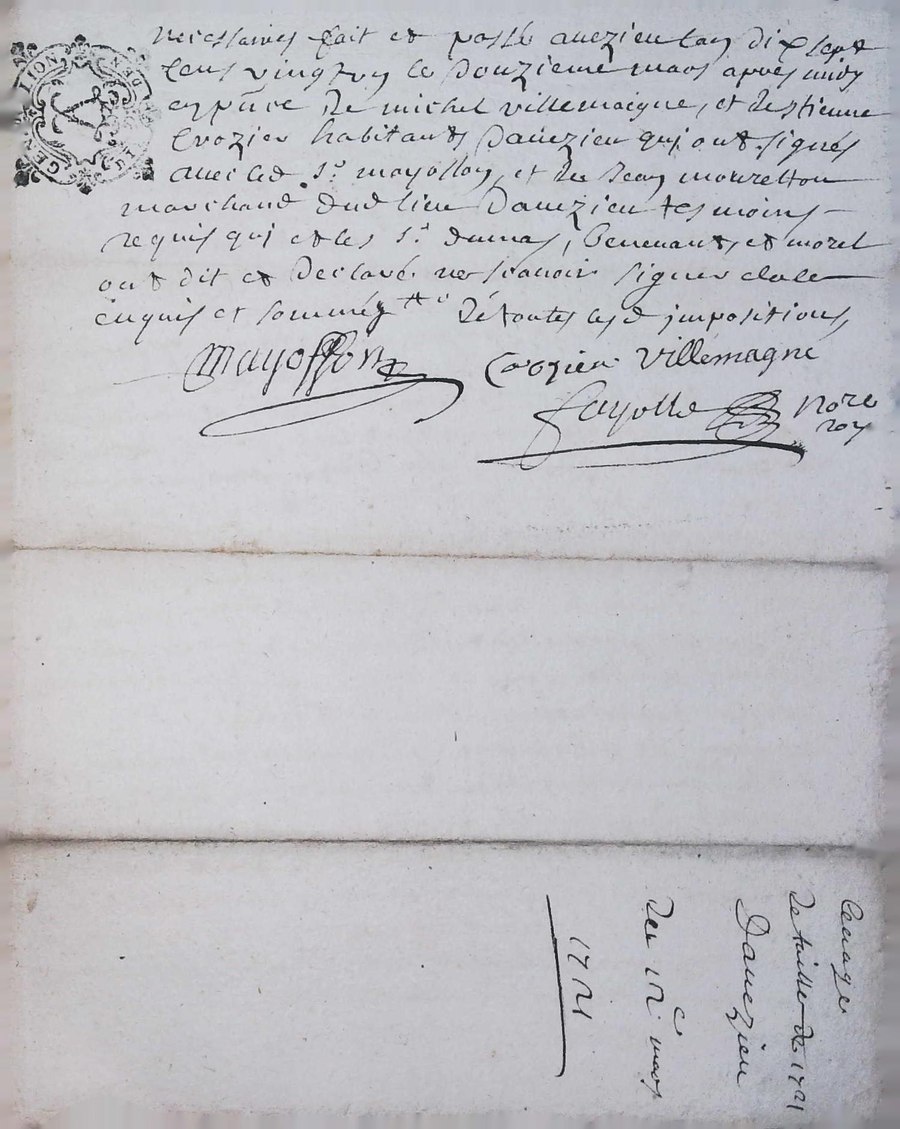 GENE LION
necessaires fait et passé auezieu lan dix sept
cens vingt un le douzieme mars apres midy
en pñce de michel villemaigne, et destienne
Crozier habitants dauezieu qui ont signés
auec led Sr. mayollon, et de Jean mouretton
marchand dud lieu dauezieu tesmoins
requis qui et les Srs dumas, et morel
ont dit et declaré ne scavoir signer de ce
enquis et sommés de toutes lesd jmpositions,
mayosson Crozier villemagne
fayolle nore
roy
Leuage
de taille de 1721
Dauezieu
du 12e mars
1721